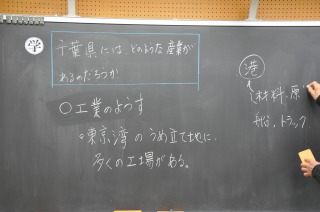 学
千葉県には、どのような産業が
あるのだろうか
○工業のようす
・東京湾のうめ立て地に、
多くの工場がある。
港
材料、原
船、トラック